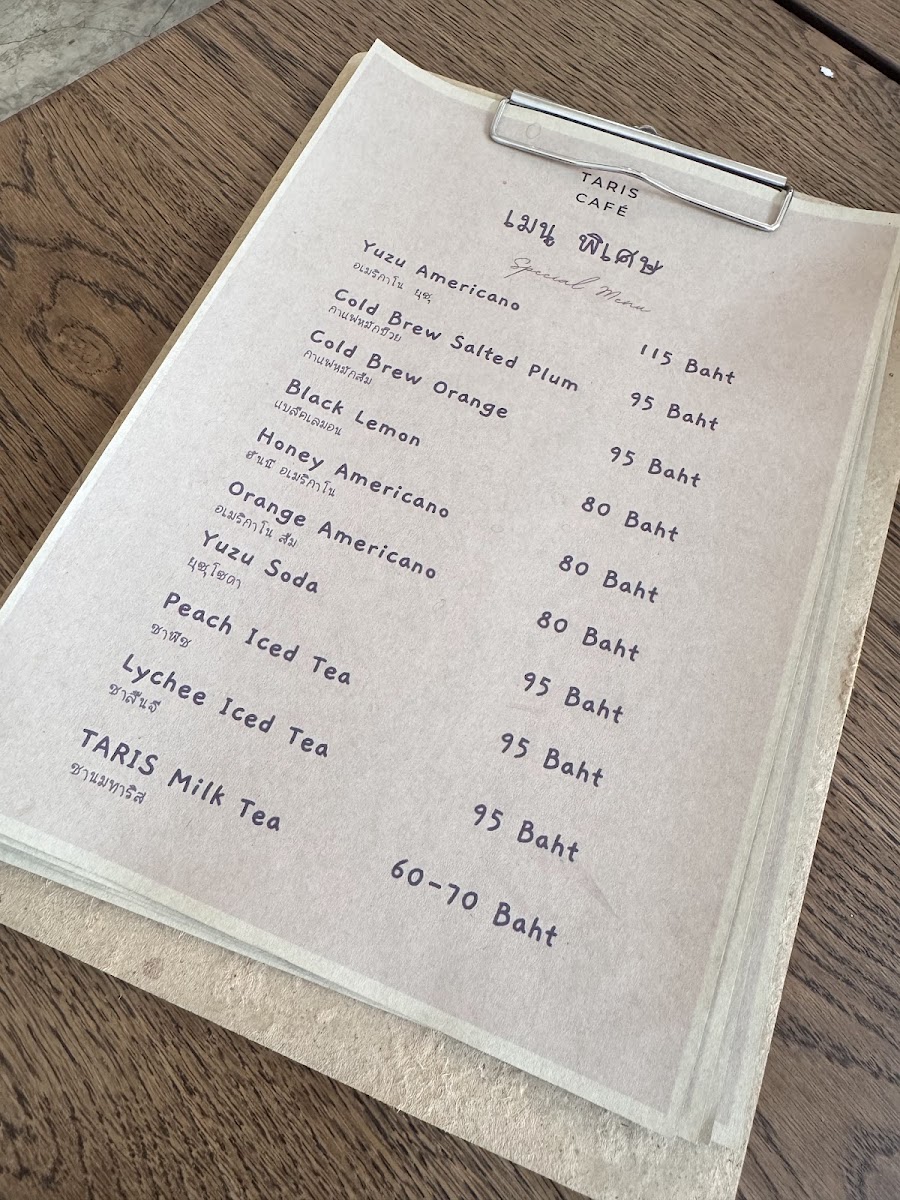 TARIS
CAFÉ
เมนู พิเศษ
Special Menu
Yuzu Americano 115 Baht
อเมริคาโน ยุซุ
Cold Brew Salted Plum 95 Baht
กาแฟหมักบ๊วย
Cold Brew Orange 95 Baht
กาแฟหมักส้ม
Black Lemon 80 Baht
แบล็คเลมอน
Honey Americano 80 Baht
ฮันนี่ อเมริคาโน
Orange Americano 80 Baht
อเมริคาโน ส้ม
Yuzu Soda 95 Baht
ยุซุโซดา
Peach Iced Tea 95 Baht
ชาพีช
Lychee Iced Tea 95 Baht
ชาลิ้นจี่
TARIS Milk Tea 60-70 Baht
ชานมทาริส